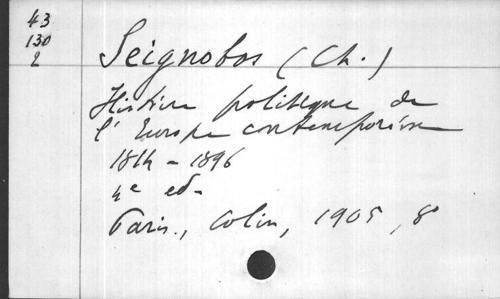 43
130
2
Seignobos (Ch.)
Histoire politique de
l'Europe contemporaine
1814-1896
4e ed.
Paris., Colin, 1905, 8°